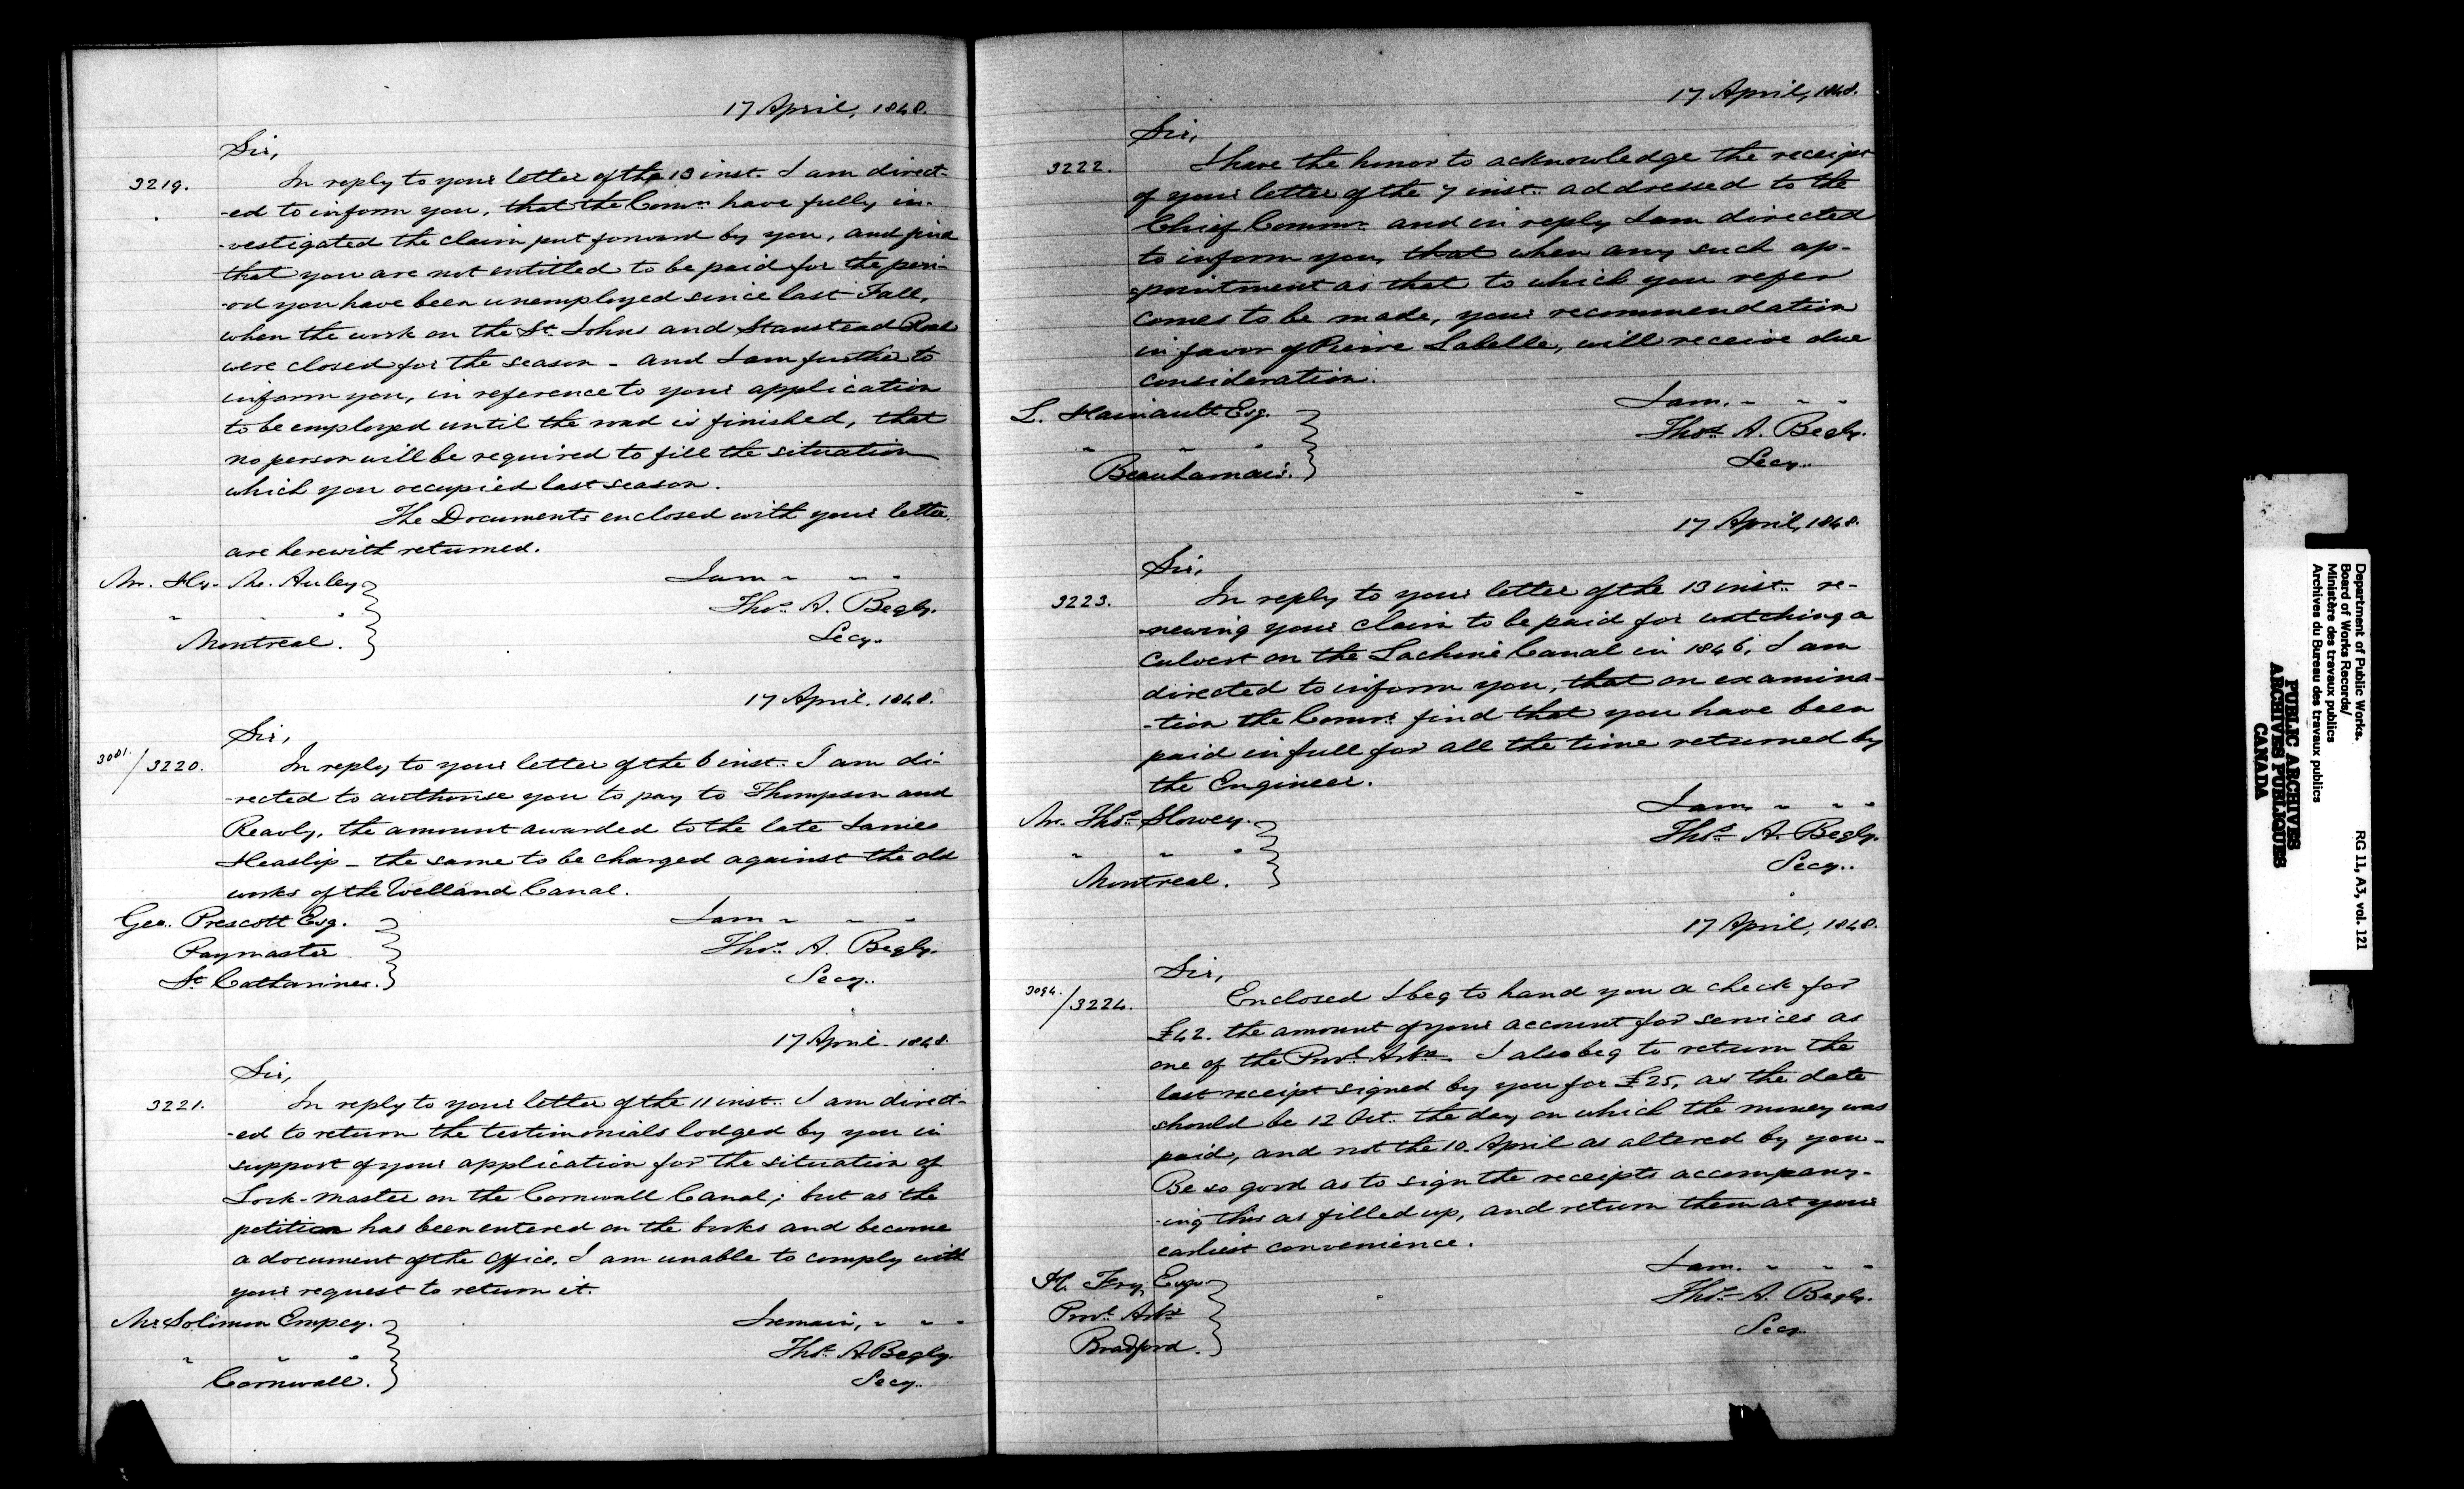 17 April, 1848.
Sir,
3219. In reply to your letter of the 13 inst. I am direct-
-ed to inform you, that the Comrs. have fully in-
-vestigated the claim put forward by you, and find
that you are not entitled to be paid for the peri-
-od you have been unemployed since last Fall,
when the work on the St. Johns and Stanstead Road
were closed for the season - and I am further to
inform you, in reference to your application
to be employed until the road is finished, that
no person will be required to fill the situation
which you occupied last season.
The Documents enclosed with your letter
are herewith returned.
Mr. Hy. Mc. Auley
Montreal.
I am " " "
Thos. A. Begly.
Secy.
17 April. 1848.
Sir,
3081./3220. In reply to your letter of the 6 inst. I am di-
-rected to authorise you to pay to Thompson and
Reavly, the amount awarded to the late James
Heaslip - the same to be charged against the old
works of the Welland Canal.
Geo. Prescott Esq.
Paymaster
St. Catharines.
I am " " "
Thos. A. Begly.
Secy.
17 April - 1848.
Sir,
3221. In reply to your letter of the 11 inst. I am direct-
-ed to return the testimonials lodged by you in
support of your application for the situation of
Lock-master on the Cornwall Canal; but as the
petition has been entered on the books and become
a document of the office, I am unable to comply with
your request to return it.
Mr. Solimon Empey.
" " "
Cornwall.
I remain, " " "
Thos. A. Begly.
Secy.
17 April, 1848.
Sir,
3222. I have the honor to acknowledge the receipt
of your letter of the 7 inst. addressed to the
Chief Commr. and in reply I am directed
to inform you, that when any such ap-
-pointment as that to which you refer
comes to be made, your recommendation
in favor of Pierre Labelle, will receive due
consideration.
L. Hainault Esq.
" " "
Beauharnais.
I am. " " "
Thos. A. Begly.
Secy.
17 April, 1848.
Sir,
3223. In reply to your letter of the 13 inst. re-
-newing your claim to be paid for watching a
culvert on the Lachine Canal in 1846, I am
directed to inform you, that on examina-
-tion the Comrs. find that you have been
paid in full for all the time returned by
the Engineer.
Mr. Thos. Slowey.
" " "
Montreal.
I am " " "
Thos. A. Begly.
Secy.
17 April, 1848.
Sir,
3094./3224. Enclosed I beg to hand you a check for
£42. the amount of your account for services as
one of the Provl. Arbs. I also beg to return the
last receipt signed by you for £25, as the date
should be 12 Oct. the day on which the money was
paid, and not the 10. April as altered by you -
Be so good as to sign the receipts accompany-
-ing this as filled up, and return them at your
earliest convenience.
H. Fry, Esqr.
Provl. Arbr.
Bradford.
I am. " " "
Thos. A. Begly.
Secy.
Department of Public Works.
Board of Works Records/
Ministère des travaux publics
Archives du Bureau des travaux publics
RG 11, A3, vol. 121
PUBLIC ARCHIVES
ARCHIVES PUBLIQUES
CANADA